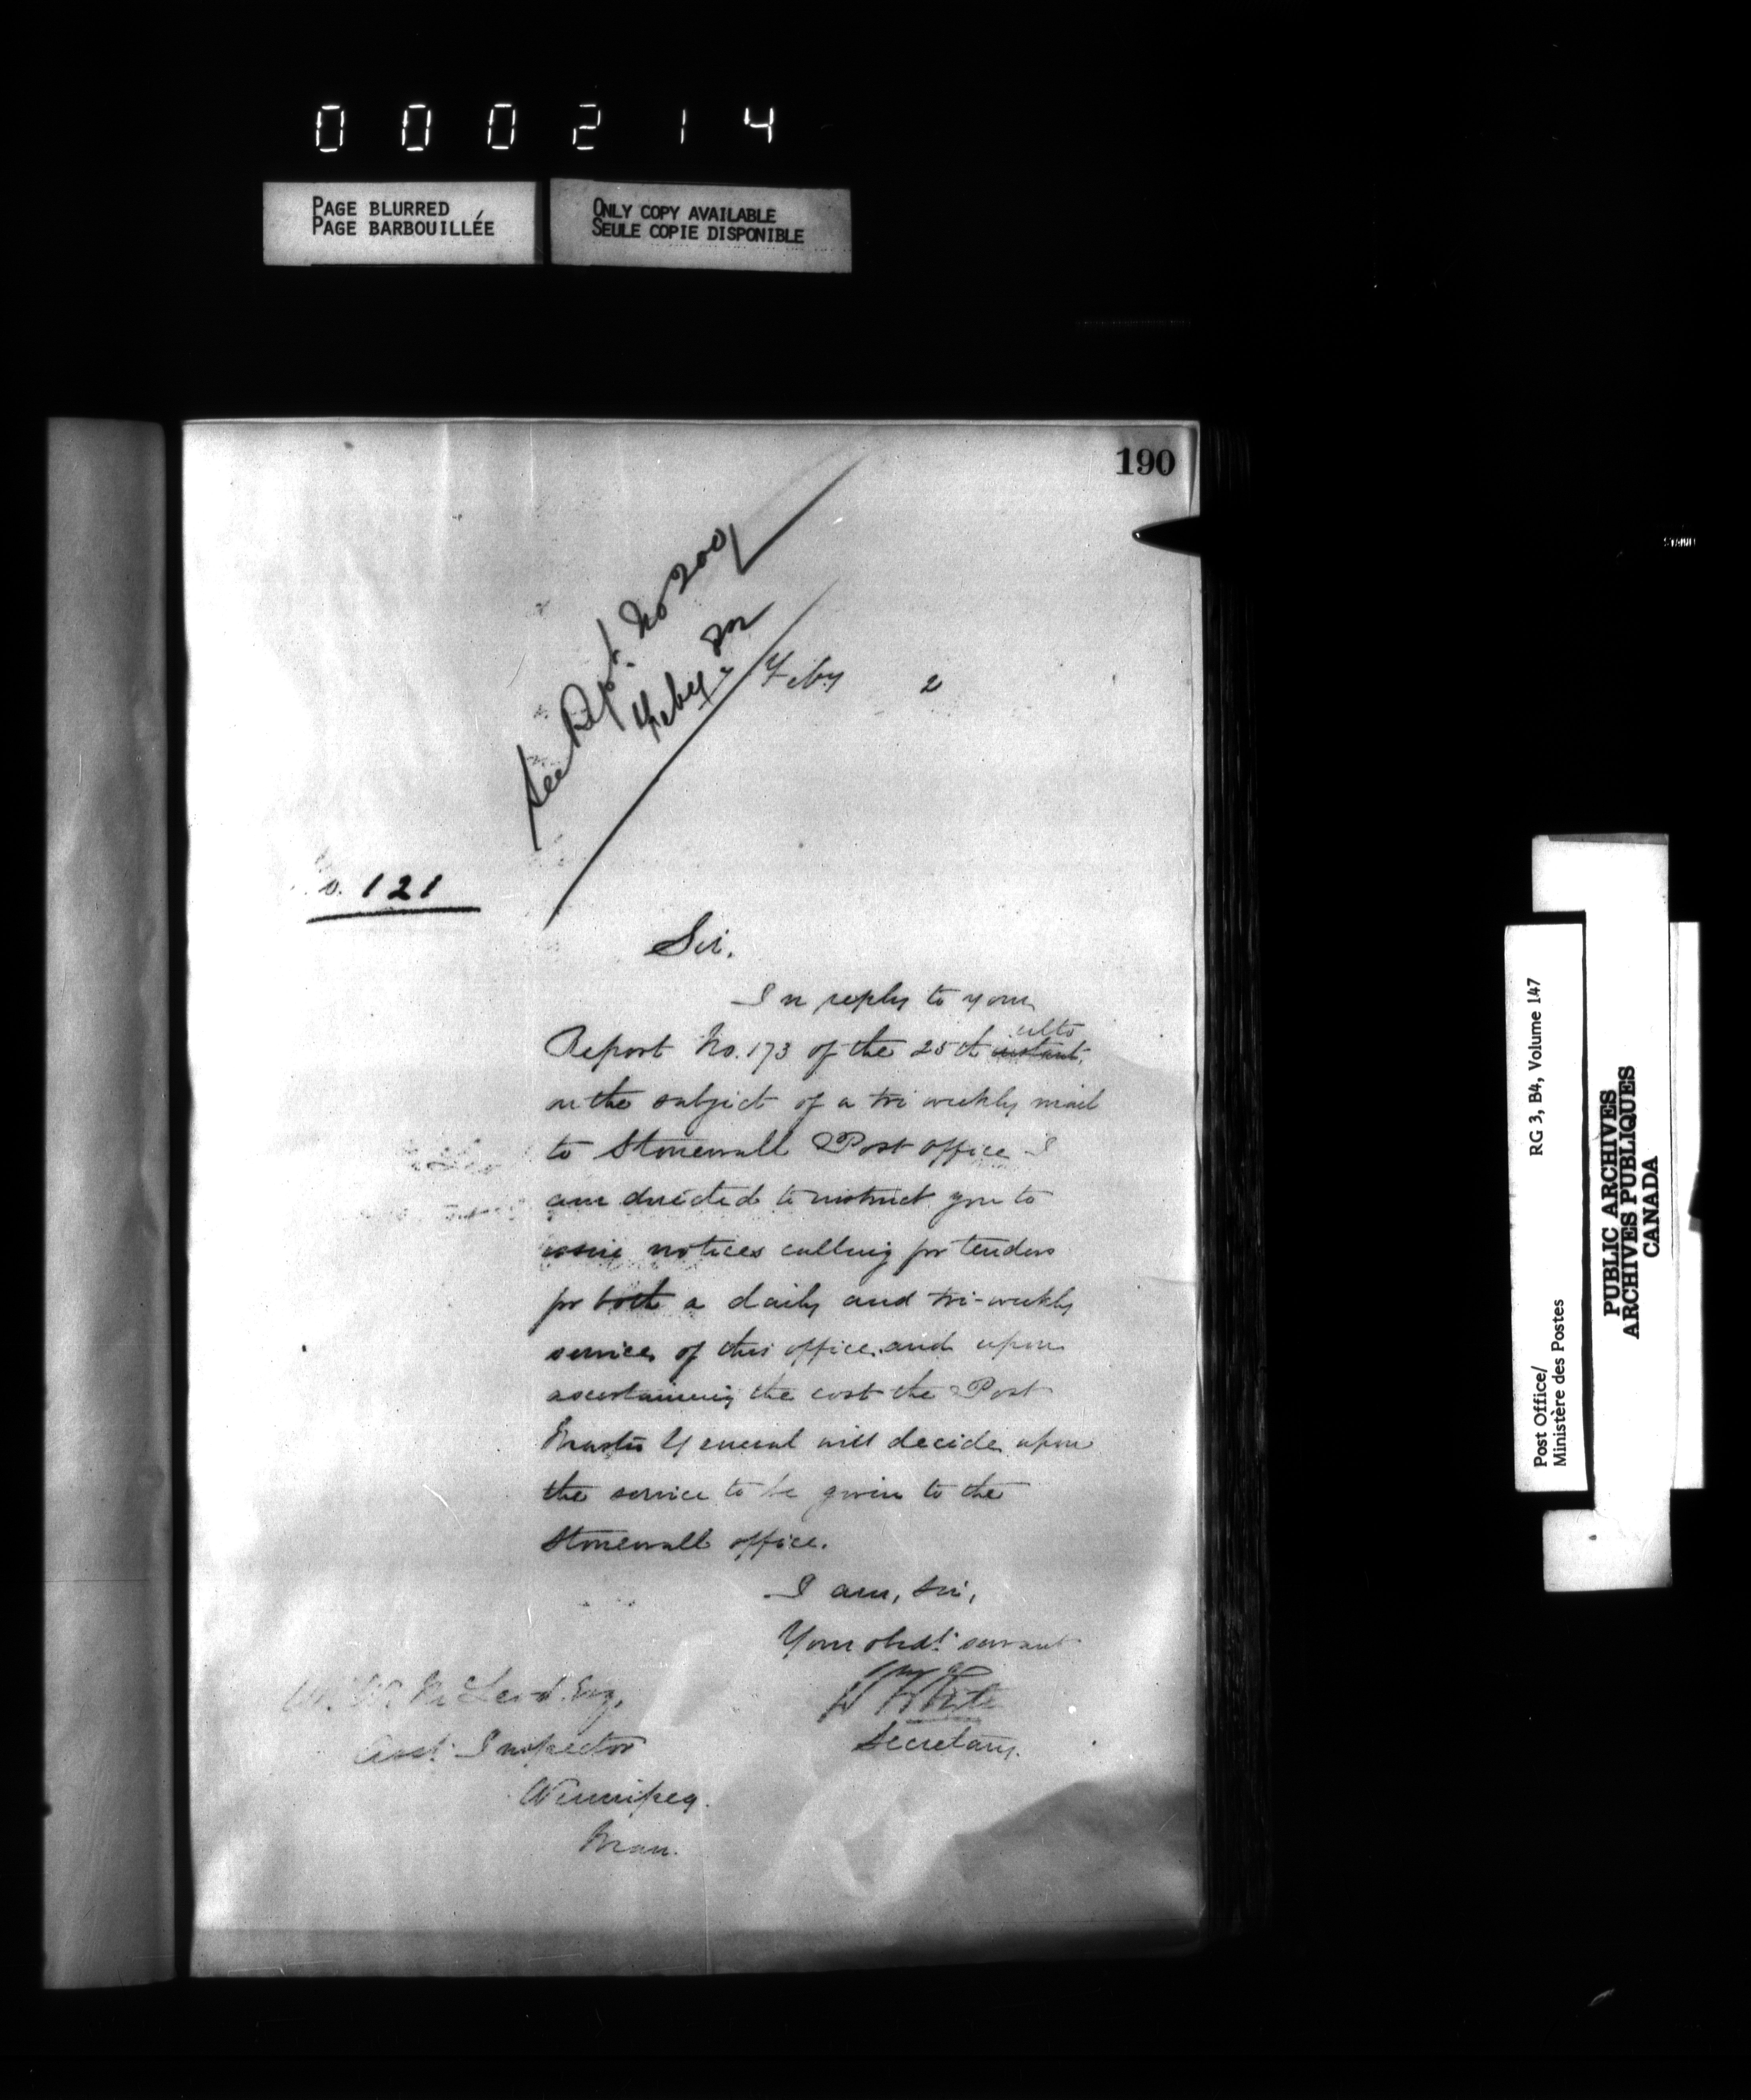 000214
PAGE BLURRED
PAGE BARBOUILLÉE
ONLY COPY AVAILABLE
SEULE COPIE DISPONIBLE
190
See Rpt. No 200
Feby
Feby 2
o. 121
Sir.
In reply to your
Report No. 173 of the 25th instant, ulto
on the subject of a tri weekly mail
to Stonewall Post office I
am directed to instruct you to
issue notices calling for tenders
for both a daily and tri-weekly
service of this office and upon
ascertaining the cost the Post
Master General will decide upon
the service to be given to the
Stonewall office.
I am, Sir,
Your obedt. servant
W White
Secretary.
W. W. McLeod. Esq,
Asst. Inspector
Winnipeg.
Man.
Post Office/ RG 3, B4, Volume 147
Ministère des Postes
PUBLIC ARCHIVES
ARCHIVES PUBLIQUES
CANADA